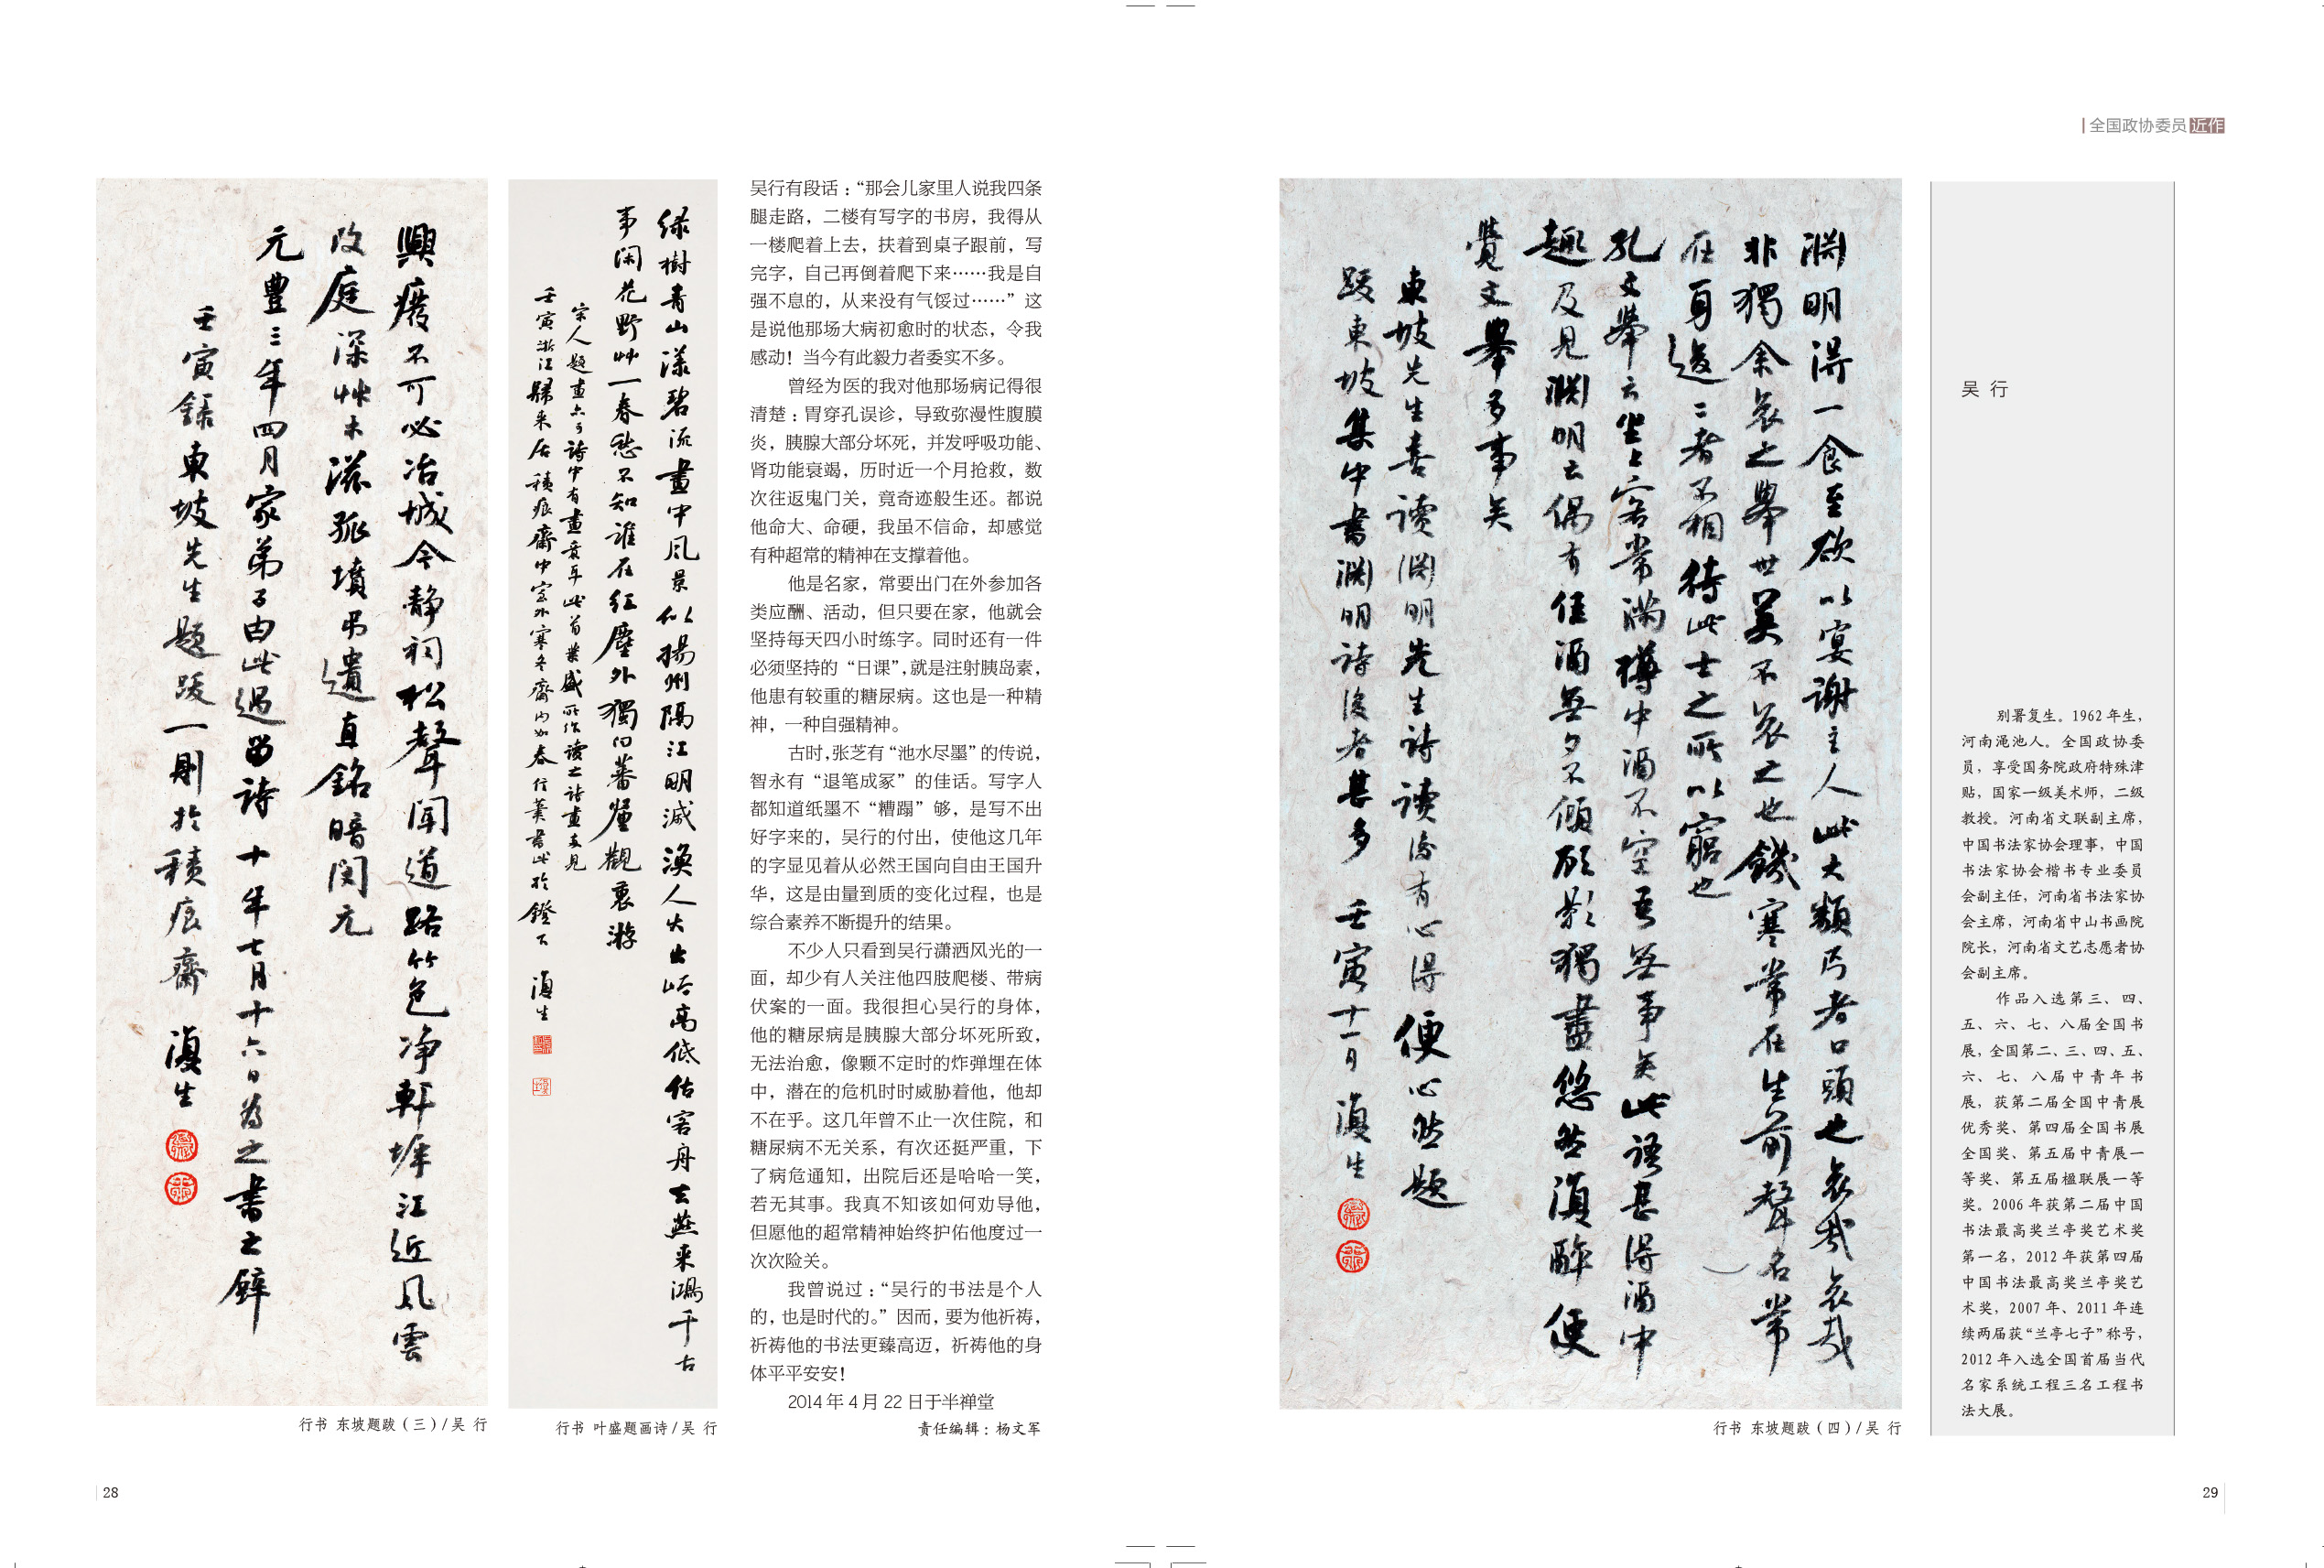 興廢不可必冶城今靜祠松聲聞道路竹色净軒墀江近風雲
改庭深艸木滋孤墳弔遺直銘暗閔元
元豐三年四月家弟子由此過留詩十年七月十六日為之書之
壬寅録東坡先生題跋一則於積痕齋 復生
行书 东坡题跋（三）/吴 行
绿樹青山漾碧流畫中風景似揚州隔江明滅漁人火出峪高低估客舟去燕来鴻千古
事闲花野艸一春愁不知誰在紅塵外獨向蕃釐觀裏游
宋人題畫詩中有畫意耳此首葉盛所作讀之詩畫互見
壬寅浙江歸来居積痕齋中室外寒冬齋内如春行筆書此於鐙下 復生
行书 叶盛题画诗/吴 行
吴行有段话：“那会儿家里人说我四条
腿走路，二楼有写字的书房，我得从
一楼爬着上去，扶着到桌子跟前，写
完字，自己再倒着爬下来……我是自
强不息的，从来没有气馁过……”这
是说他那场大病初愈时的状态，令我
感动！当今有此毅力者委实不多。
曾经为医的我对他那场病记得很
清楚：胃穿孔误诊，导致弥漫性腹膜
炎，胰腺大部分坏死，并发呼吸功能、
肾功能衰竭，历时近一个月抢救，数
次往返鬼门关，竟奇迹般生还。都说
他命大、命硬，我虽不信命，却感觉
有种超常的精神在支撑着他。
他是名家，常要出门在外参加各
类应酬、活动，但只要在家，他就会
坚持每天四小时练字。同时还有一件
必须坚持的“日课”，就是注射胰岛素，
他患有较重的糖尿病。这也是一种精
神，一种自强精神。
古时，张芝有“池水尽墨”的传说，
智永有“退笔成冢”的佳话。写字人
都知道纸墨不“糟蹋”够，是写不出
好字来的，吴行的付出，使他这几年
的字显见着从必然王国向自由王国升
华，这是由量到质的变化过程，也是
综合素养不断提升的结果。
不少人只看到吴行潇洒风光的一
面，却少有人关注他四肢爬楼、带病
伏案的一面。我很担心吴行的身体，
他的糖尿病是胰腺大部分坏死所致，
无法治愈，像颗不定时的炸弹埋在体
中，潜在的危机时时威胁着他，他却
不在乎。这几年曾不止一次住院，和
糖尿病不无关系，有次还挺严重，下
了病危通知，出院后还是哈哈一笑，
若无其事。我真不知该如何劝导他，
但愿他的超常精神始终护佑他度过一
次次险关。
我曾说过：“吴行的书法是个人
的，也是时代的。”因而，要为他祈祷，
祈祷他的书法更臻高迈，祈祷他的身
体平平安安！
2014 年 4 月 22 日于半禅堂
责任编辑：杨文军
28
全国政协委员 近作
渊明得一食至欲以冥謝主人此大類丐者口頰也哀哉哀哉
非獨余哀之舉世莫不哀之也饑寒常在生前聲名常
在身後二者不相待此士之所以窮也
孔文舉云坐上客常滿樽中酒不空吾無事矣此語甚得酒中
趣及見渊明云偶有佳酒無夕不傾顧影獨盡悠然復醉便
覺文舉多事矣
東坡先生喜讀渊明先生詩讀後有心得便心然題
跋東坡集中書渊明詩後者甚多 壬寅十一月 復生
行书 东坡题跋（四）/吴 行
吴 行
别署复生。1962 年生，
河南渑池人。全国政协委
员，享受国务院政府特殊津
贴，国家一级美术师，二级
教授。河南省文联副主席，
中国书法家协会理事，中国
书法家协会楷书专业委员
会副主任，河南省书法家协
会主席，河南省中山书画院
院长，河南省文艺志愿者协
会副主席。
作品入选第三、四、
五、六、七、八届全国书
展，全国第二、三、四、五、
六、七、八届中青年书
展，获第二届全国中青展
优秀奖、第四届全国书展
全国奖、第五届中青展一
等奖、第五届楹联展一等
奖。2006 年获第二届中国
书法最高奖兰亭奖艺术奖
第一名，2012 年获第四届
中国书法最高奖兰亭奖艺
术奖，2007 年、2011 年连
续两届获“兰亭七子”称号，
2012 年入选全国首届当代
名家系统工程三名工程书
法大展。
29